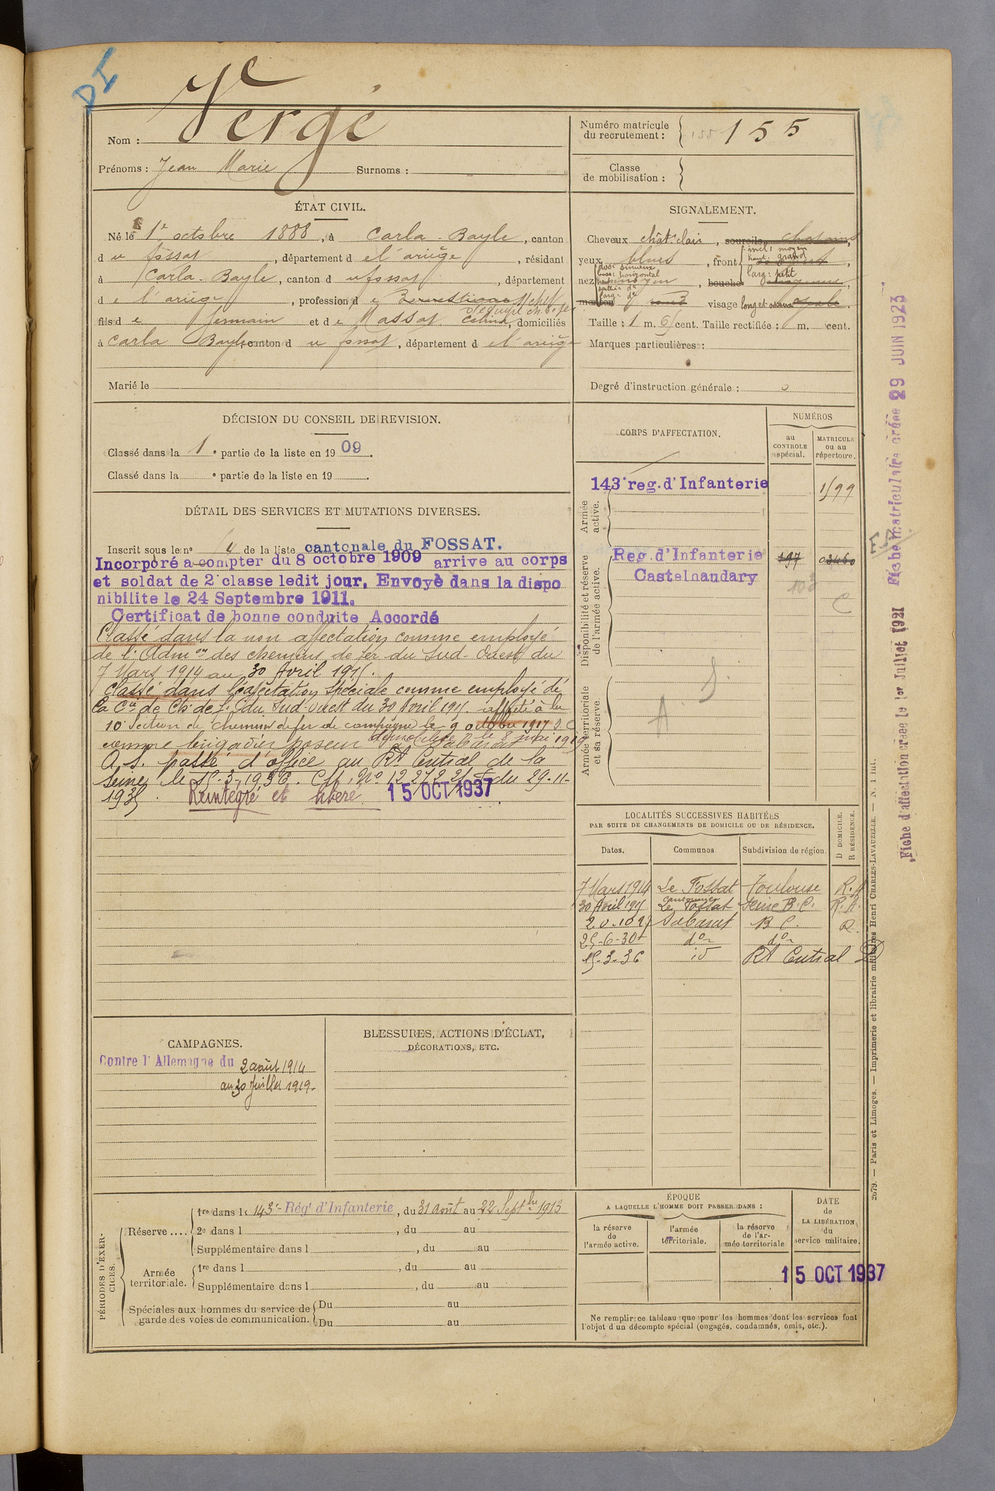 DI
Nom : Vergé
Prénoms : Jean Marie Surnoms :
Numéro matricule du recrutement : 155
Classe de mobilisation :
ÉTAT CIVIL.
Né le 1er octobre 1888, à Carla-Bayle, canton
du fossat, département de l'ariège, résidant
à Carla-Bayle, canton du fossat, département
de l'ariège, profession de
fils de Germain et de Massat, domiciliés
à Carla Bayle, canton du fossat, département de l'ariège
Marié le
SIGNALEMENT.
Cheveux chât clair, sourcils
yeux bleus, front incl: moyen haut: grand larg: petit
nez dos: sinueux base: horizontal, bouche
menton rond visage long et
Taille : 1 m. 61 cent. Taille rectifiée : 1 m. cent.
Marques particulières :
Degré d'instruction générale :
DÉCISION DU CONSEIL DE REVISION.
Classé dans la 1e partie de la liste en 1909.
Classé dans la e partie de la liste en 19 .
CORPS D'AFFECTATION.
NUMÉROS
au contrôle spécial.
matricule ou au répertoire.
Armée active.
143e reg. d'Infanterie
Disponibilité et réserve de l'armée active.
Reg. d'Infanterie 197
Castelnaudary
Armée territoriale et sa réserve.
A S.
DÉTAIL DES SERVICES ET MUTATIONS DIVERSES.
Inscrit sous le no de la liste cantonale du FOSSAT.
Incorporé à compter du 8 octobre 1909 arrive au corps
et soldat de 2e classe ledit jour. Envoyé dans la dispo
nibilite le 24 Septembre 1911.
Certificat de bonne conduite Accordé
Classé dans la non affectation comme employé
de l'Admon des chemins de fer du Sud-Ouest du
7 Mars 1914 au 30 Avril 191
Classé dans l'affectation spéciale comme employé de
la Cie de Ch. de f. du Sud-Ouest du 30 Avril 191 affecté à la
10e Section de Chemins de fer de campagne le 9 octobre 1917
comme brigadier poseur démobilisé le 8 mai 1919
A.S. passé d'office au Rt Central de la
Seine le 15-3-1936. du 29-11-
1935. Réintégré et libéré 15 OCT 1937
LOCALITÉS SUCCESSIVES HABITÉES
PAR SUITE DE CHANGEMENTS DE DOMICILE OU DE RÉSIDENCE.
Dates. Communes Subdivision de région. D DOMICILE. R RÉSIDENCE.
7 Mars 1914 Le Fossat Toulouse R.
30 Avril 191 Le Fossat Seine B.C. R.
Sabarat B C. R
25-6-30 do do
15-3-36 id Rt Central D
CAMPAGNES.
Contre l'Allemagne du 2 août 1914
au 30 Juillet 1919.
BLESSURES, ACTIONS D'ÉCLAT,
DÉCORATIONS, ETC.
PÉRIODES D'EXERCICES.
Réserve.... 1re dans le 143e Rég' d'Infanterie, du 31 août au 22 Septbre 1913
2e dans l , du au
Supplémentaire dans l , du au
Armée territoriale. 1re dans l , du au
Supplémentaire dans l , du au
Spéciales aux hommes du service de garde des voies de communication. Du au
Du au
ÉPOQUE
A LAQUELLE L'HOMME DOIT PASSER DANS :
la réserve de l'armée active.
l'armée territoriale.
la réserve de l'armée territoriale
DATE DE LA LIBÉRATION du service militaire.
15 OCT 1937
Ne remplir ce tableau que pour les hommes dont les services font
l'objet d'un décompte spécial (engagés, condamnés, omis, etc.).
Fiche matriculaire créée 29 JUIN 1923
Fiche d'affectation créée le 1er Juillet 1921
2679. — Paris et Limoges. — Imprimerie et librairie militaires Henri CHARLES-LAVAUZELLE.